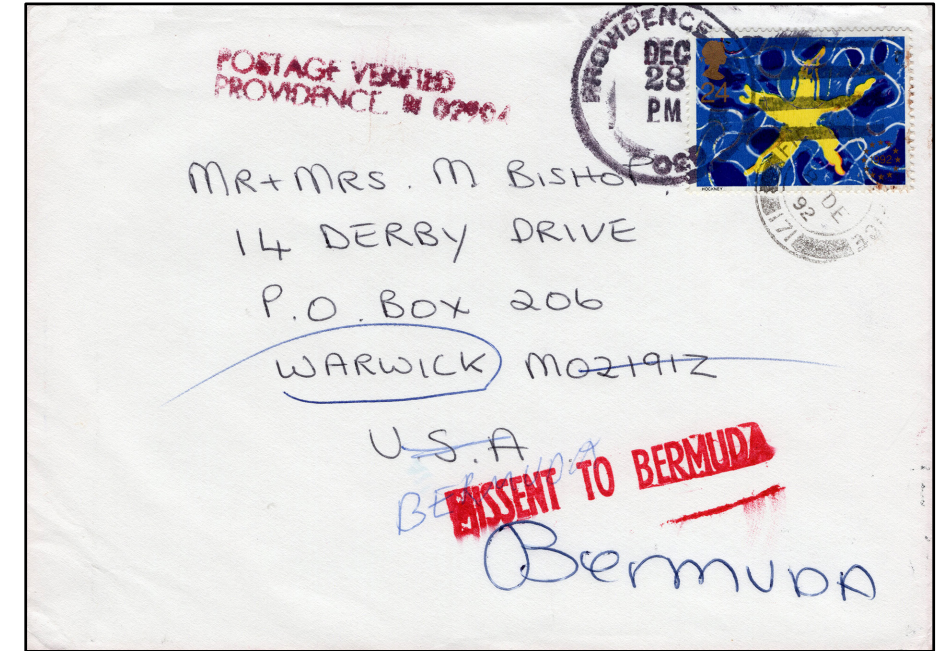 POSTAGE VERIFIED
PROVIDENCE, RI 02904
PROVIDENCE
DEC
28
PM
24
1992
HOCKNEY
DE
92
171
MR + MRS. M BISHOP
14 DERBY DRIVE
P.O. BOX 206
WARWICK MO21912
U.S.A
BERMUDA
MISSENT TO BERMUDA
BERMUDA